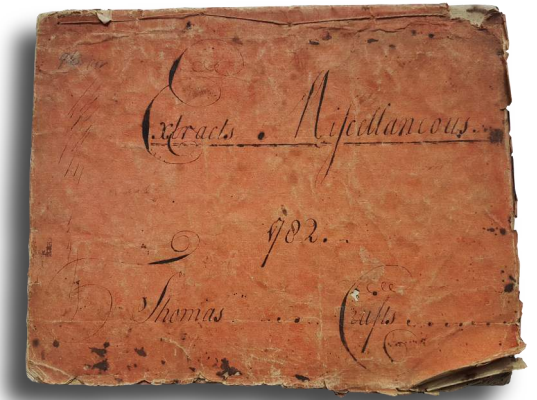 Extracts. Miscellaneous.
1782..
Thomas